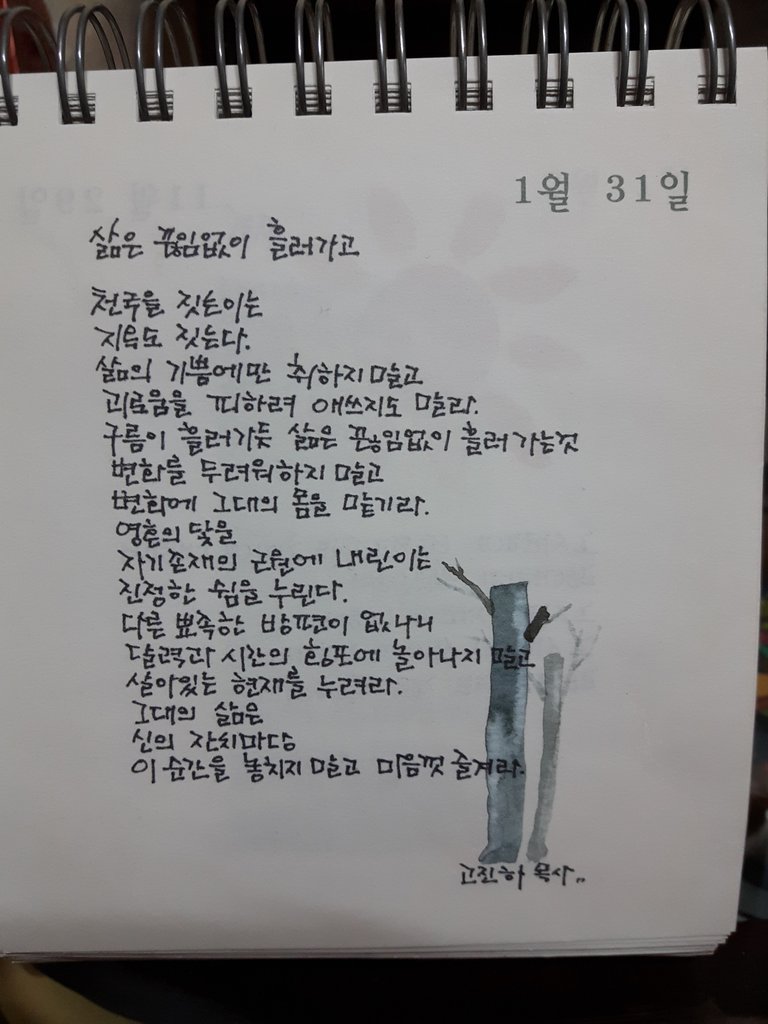 1월 31일
삶은 끊임없이 흘러가고
천국을 짓는이는
지옥도 짓는다.
삶의 기쁨에만 취하지 말고
괴로움을 피하려 애쓰지도 말라.
구름이 흘러가듯 삶은 끊임없이 흘러 가는것
변화를 두려워하지 말고
변화에 그대의 몸을 맡기라.
영혼의 닻을
자기존재의 근원에 내린이는
진정한 쉼을 누린다.
다른 뾰족한 방편이 없나니
달력과 시간의 횡포에 놀아나지 말고
살아있는 현재를 누려라.
그대의 삶은
신의 잔치마당
이 순간을 놓치지 말고 마음껏 즐겨라.
고진하 목사..